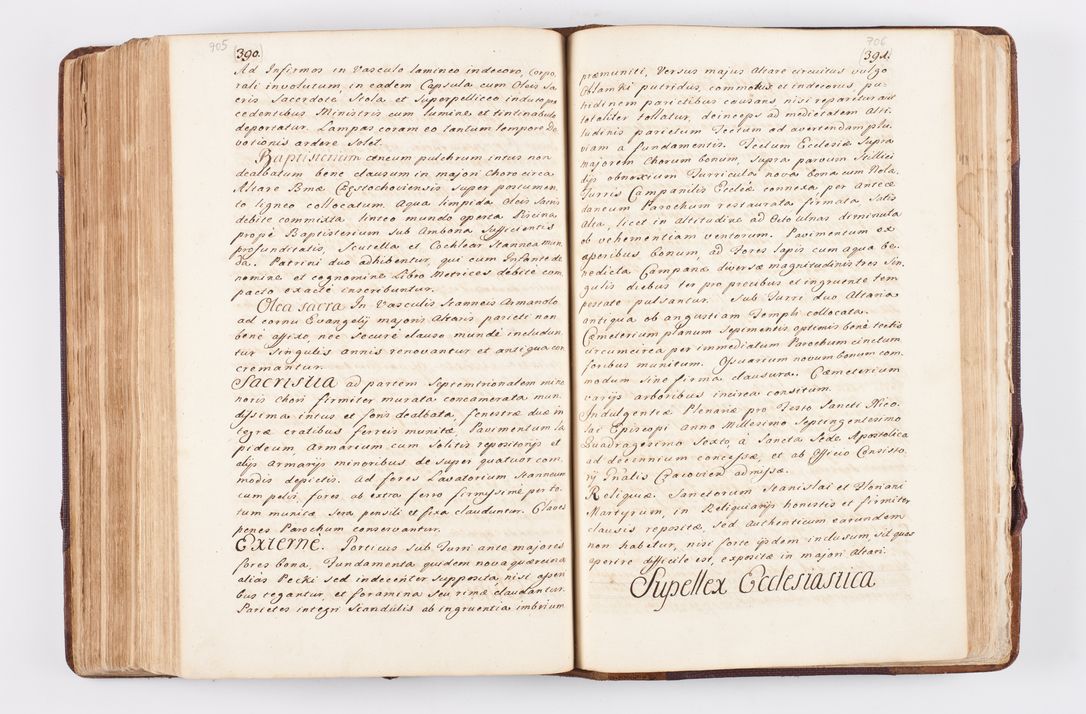 905
390.
Ad Infirmos in Vasculo lamineo indecoro, Corpo
rali involutum, in eadem Capsula cum Oleis Sa
cris Sacerdote Stola et Superpelliceo induto prę
cedentibus Ministris cum lumine et tintinabulo
deportatur. Lampas coram eo tantum tempore De
votionis ardere solet.
Baptisterium cæneum pulchrum intus non
dealbatum bene clausum in majori Choro circa
Altare Bmæ Częstochoviensis super postumen
to ligneo collocatum. Aqua limpida Oleis Sacris
debite commixta, linteo mundo aperta Piscina
propè Baptisterium sub Ambona Sufficientis
profunditatis, Scutella et Cochlear Stannea mun
da. Patrini duo adhibentur, qui cum Infante de
nomine et cognomine Libro Metrices debite com
pacto exactè inscribuntur.
Olea sacra In Vasculis Stanneis Armariolo
ad cornu Evangelij majoris Altaris parieti non
benè affixo, nec securè clauso mundè includun
tur Singulis annis renovantur et antiqua con
cremantur.
Sacristia ad partem Septemtrionalem mino
noris Chori firmiter murata concamerata mun
dissima intus et foris dealbata, fenestræ duæ in
tegræ cratibus ferreis munitæ, Pavimentum la
pideum, Armarium cum Solitis repositorijs et
alijs Armarijs minoribus de super quatuor com
modis depictis. Ad fores Lavatorium Stanneum
cum pelvi, fores ab extra ferro firmissimè per to
tum munitæ Sera pensili et fixa clauduntur. Claves
penes Parochum conservantur.
Externè. Porticus Sub Turri ante majores
fores bona, Fundamenta quidem nova quærcina
alias Pecki sed indecenter supposita, nisi asseri
bus tegantur, et foramina seu rimæ claudantur.
Parietes integri Scandulis ab ingruentia imbrium
706
391.
præmuniti, Versus majus Altare circuitus vulgo
putridus, commotus et indecorus, pu
tredinem parietibus causans, nisi reparetur aut
totaliter tollatur, deinceps ad medietatem Alti
tudinis parietum Tectum ad avertendam plu
viam a fundamentis. Tectum Ecclesiæ Supra
majorem Chorum bonum, supra parvum Stillici
dijs obnoxium Turricula nova bona cum Nola.
Turris Campanilis Ecclæ connexa per Antece
daneum Parochum restaurata firmata Satis
Alta, licet in Altitudine ad Octo ulnas diminuta
ob vehementiam ventorum. Pavimentum ex
asseribus bonum, ad Fores lapis cum aqua be
nedicta. Campanæ diversæ magnitudinis tres Sin
gulis diebus ter pro precibus et ingruente tem
pestate pulsantur. Sub Turri duo Altaria
antiqua ob angustiam Templi collocata.
Cæmeterium planum Sepimentis optimis benè tectis
circumcirca per immediatum Parochum cinctum
foribus munitum. Ossuarium novum bonum com
modum sine firma clausura. Cæmeterium
varijs arboribus incirca consitum.
Indulgentiæ Plenariæ pro Festo Sancti Nico
lai Episcopi Anno Millesimo Septingentesimo
Quadragesimo Sexto, à Sancta Sede Apostolica
ad decennium concessæ, et ab Officio Consisto
rij Gnalis Cracovien admissæ.
Reliquiæ Sanctorum Stanislai et Floriani
Martyrum, in Reliquiarijs honestis et firmiter
clausis repositæ, Sed Authenticum earundem
non habetur, nisi forte ijsdem inclusum, sit quas
aperire difficile est, expositæ in majori Altari.
Supellex Ecclesiastica